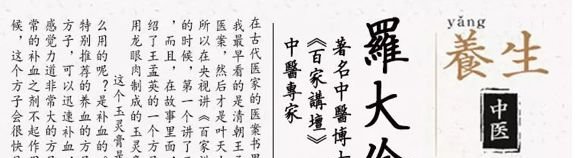 yǎng
養生
中医
羅大
著名中醫博
《百家講壇》
中醫專家
在古代医家的医案书里
我最早看的是清朝王
医案，然后才是叶天
所以在央视讲《百家
的时候，第一个讲了
，而且，在故事里面
绍了王孟英的一个方
用龙眼肉制成的玉灵
这个玉灵膏是
么用的呢？是补血的
特别推荐的养血的方
方子，可以迅速补血
感觉力道非常大的方
常的补血之剂不起作用
候，这个方子会很快